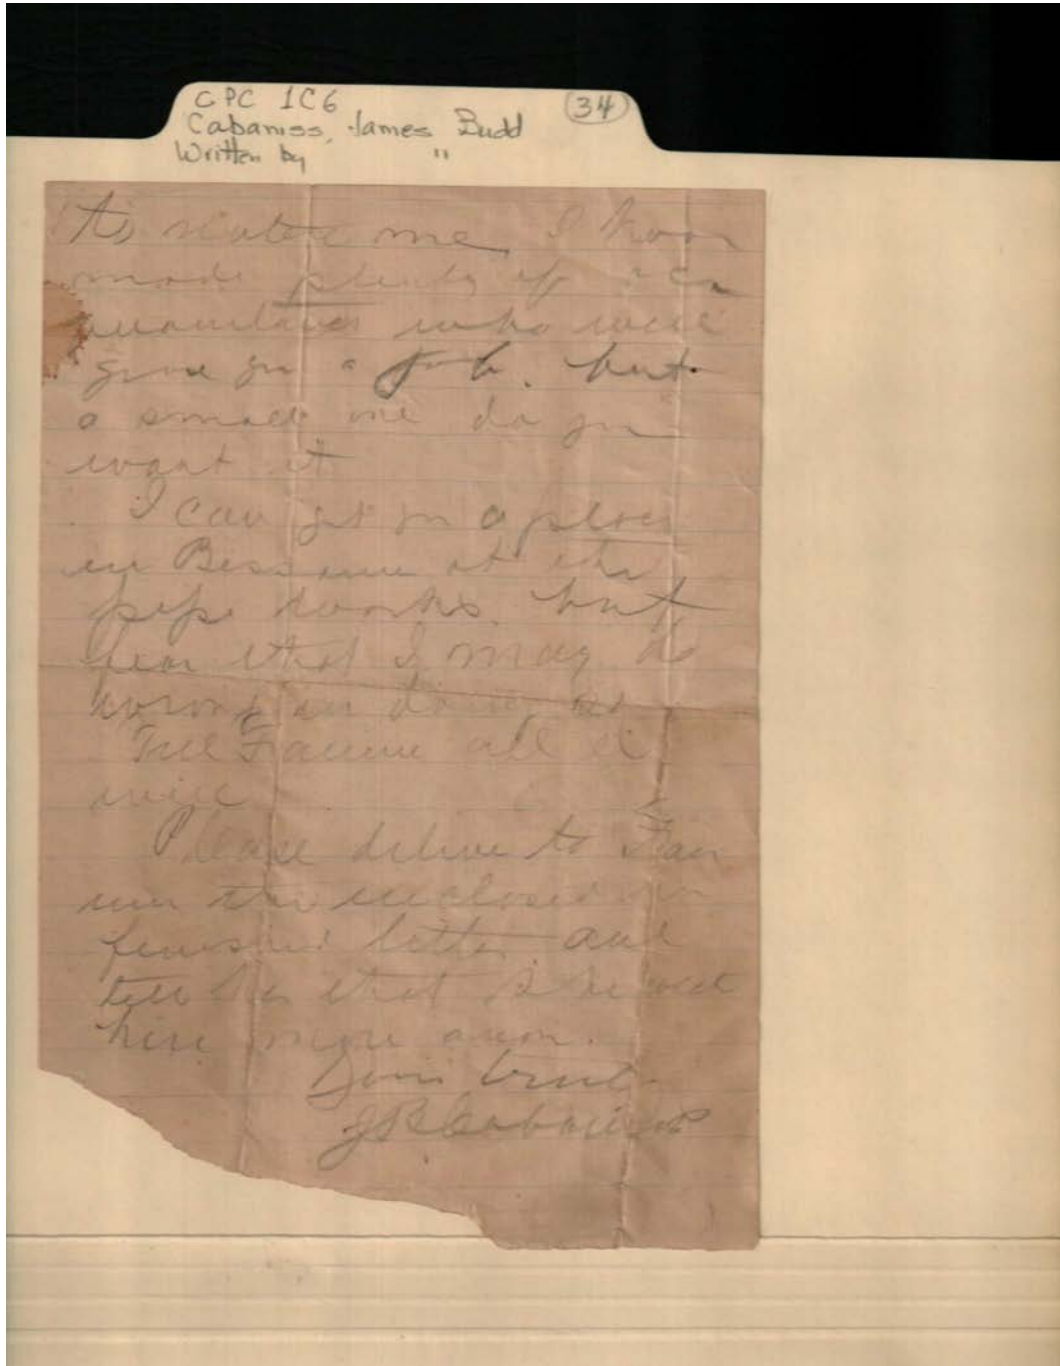 CPC 1C6
(34)
Cabaniss, James Budd
Written by "
to me I have
made plenty of
who will
give you a job. but
a small one do you
want it
I can get you a place
in Bessemer at the
pipe works. but
fear that I may do
wrong in doing so
Tell Fannie all is
well
Please deliver to Fan
nie the enclosed un
finished letter and
tell her that she will
hear more anon.
Yours truly
JB Cabaniss